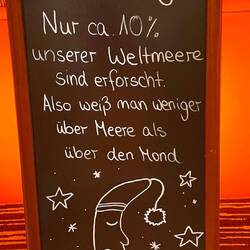 Nur ca. 10%
unserer Weltmeere
sind erforscht.
Also weiß man weniger
über Meere als
über den Mond